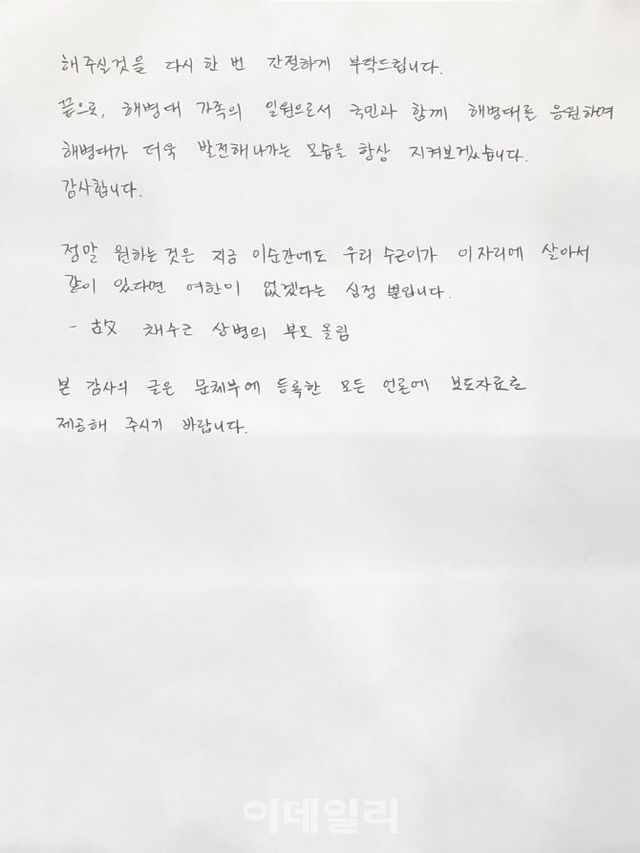 해주실것을 다시 한 번 간절하게 부탁드립니다.
끝으로, 해병대 가족의 일원으로서 국민과 함께 해병대를 응원하며
해병대가 더욱 발전해나가는 모습을 항상 지켜보겠습니다.
감사합니다.
정말 원하는것은 지금 이순간에도 우리 수근이가 이자리에 살아서
같이 있다면 여한이 없겠다는 심정 뿐입니다.
- 故 채수근 상병의 부모 올림
본 감사의 글은 문체부에 등록한 모든 언론에 보도자료로
제공해 주시기 바랍니다.
이데일리